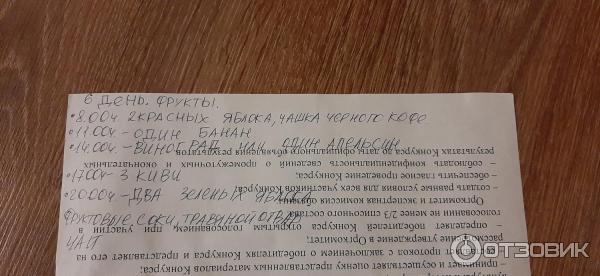 6 ДЕНЬ. ФРУКТЫ.
•8.00ч 2 КРАСНЫХ ЯБЛОКА, ЧАШКА ЧЕРНОГО КОФЕ
•11.00ч.- ОДИН БАНАН
•14.00ч - ВИНОГРАД ИЛИ ОДИН АПЕЛЬСИН
результатах Конкурса до даты официального объявления результатов
– соблюдать конфиденциальность сведений о промежуточных и окончательных
•17.00ч - 3 КИВИ
– обеспечить гласное проведение Конкурса;
– создать равные условия для всех участников Конкурса;
•20.00ч - ДВА ЗЕЛЕНЫХ ЯБЛОКА
Оргкомитет и экспертная комиссия обязаны:
голосовании не менее 2/3 списочного состава
ФРУКТОВЫЕ СОКИ, ТРАВЯНОЙ ОТВАР
– определяет победителей Конкурса открытым голосованием, при участии в
рассмотрение и утверждение в Оргкомитет;
ЧАЙ
– составляет протокол с заключением о победителях Конкурса и представляет на его
– принимает и осуществляет оценку представленных материалов Конкурса;
ОТЗОВИК